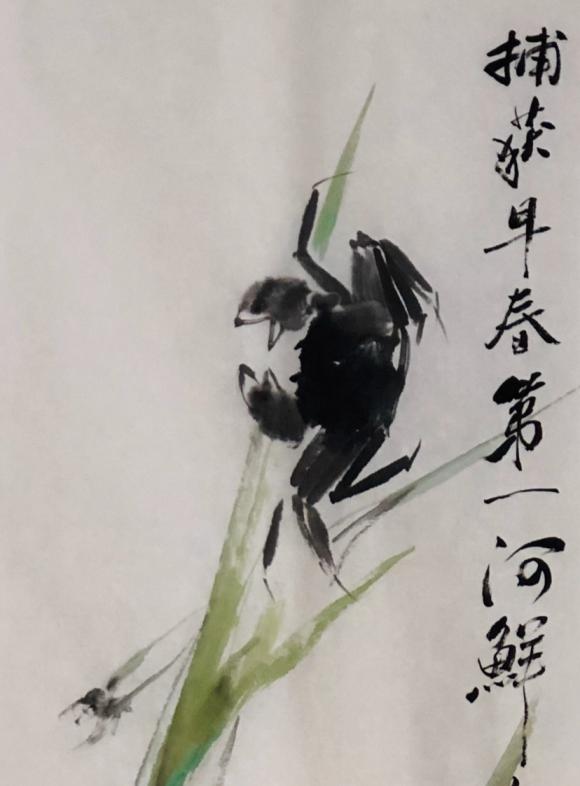 捕获早春第一河鲜